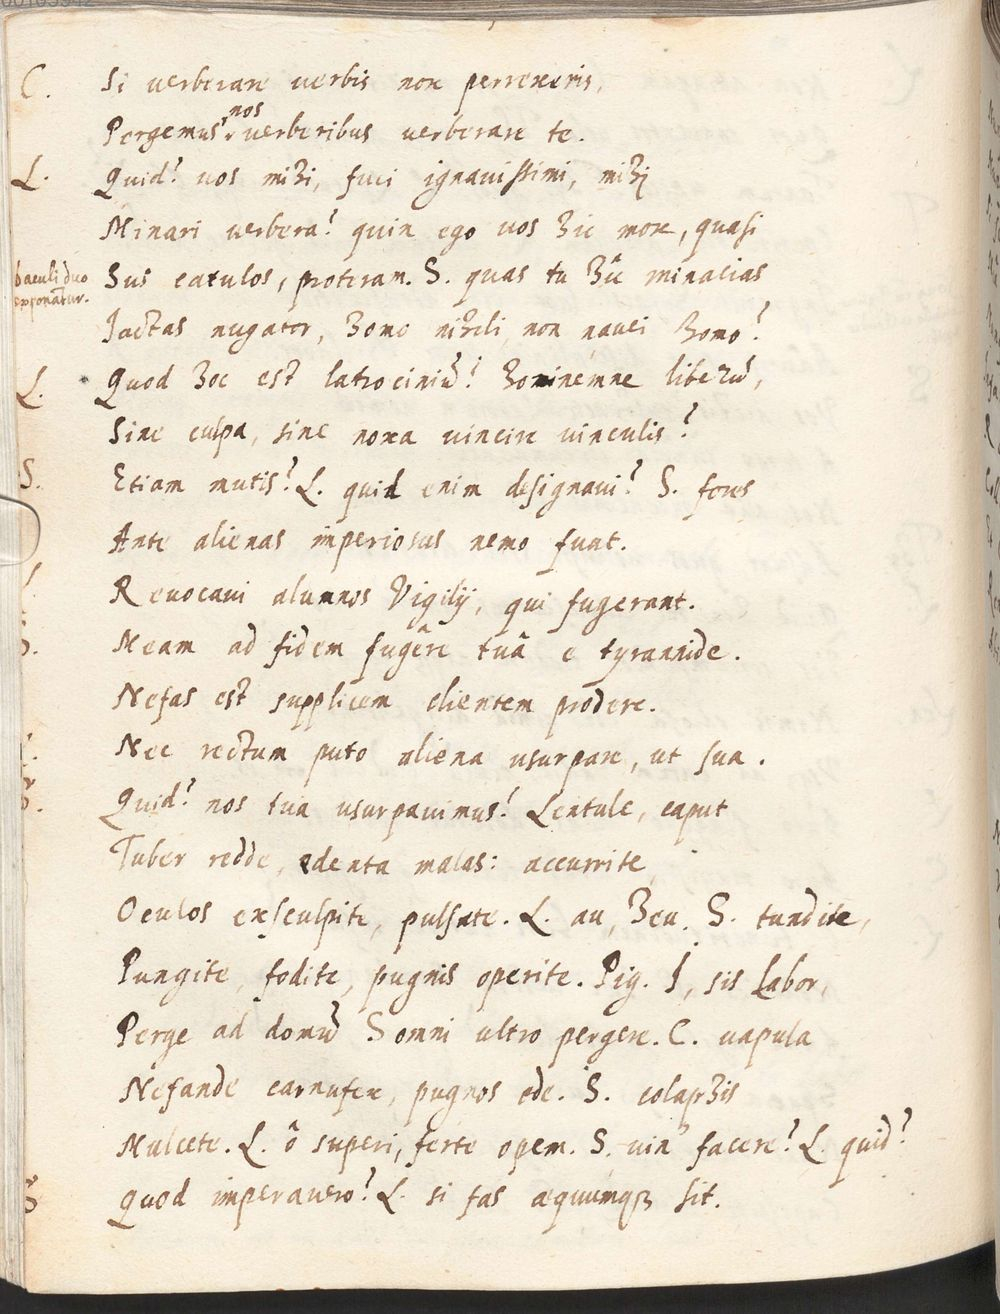 C. Si verberare verbis non perrexeris,
nos
Pergemus verberibus verberare te.
L. Quid? vos mihi, fuci ignavissimi, mihi
Minari verbera? quin ego vos hic mox, quasi
baculi duo
exponãtur.
Sus catulos, proteram. S. quas tu hûc minacias
Jactas nugator, homo nihili, non nauci homo?
L. Quod hoc est latrociniũ! hominemne liberũ,
Sine culpa, sine noxa vincire vinculis?
S. Etiam mutis? L. quid enim designavi? S. foris
Ante alienas imperiosus nemo fuat.
Revocavi alumnos Vigilij, qui fugerant.
S. Meam ad fidem fugêre tuâ e tyrannide.
Nefas est supplicem clientem prodere.
Nec rectum puto aliena usurpare, ut sua.
S. Quid? nos tua usurpavimus! Lentule, caput
Tuber redde, edenta malas: accurrite,
Oculos exsculpite, pulsate. L. au, heu. S. tundite,
Pungite, fodite, pugnis operite. Pig. I, sis Labor,
Perge ad domũ Somni ultro pergere. C. vapula
Nefande carnufex, pugnos ede. S. colaphis
Mulcete. L. ô superi, ferte opem. S. vin' facere? L. quid?
S. Quod imperavero? L. si fas æquumq3 sit.